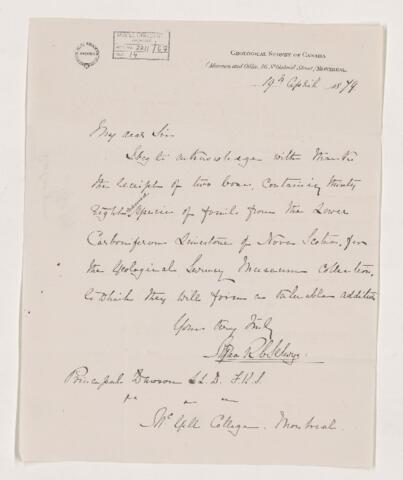 GEOLOGICAL SURVEY OF CANADA
Museum and Office, 76, St Gabriel Street, MONTREAL
19th April 1879
My dear Sir
I beg to acknowledge with thanks
the receipt of two boxes, containing thirty
eight species of fossils from the Lower
Carboniferous Limestone of Nova Scotia, for
the Geological Survey Museum collection,
to which they will form a valuable addition
Yours very truly
Alfred R C Selwyn.
Principal Dawson LL.D. F.R.S.
McGill College. Montreal.